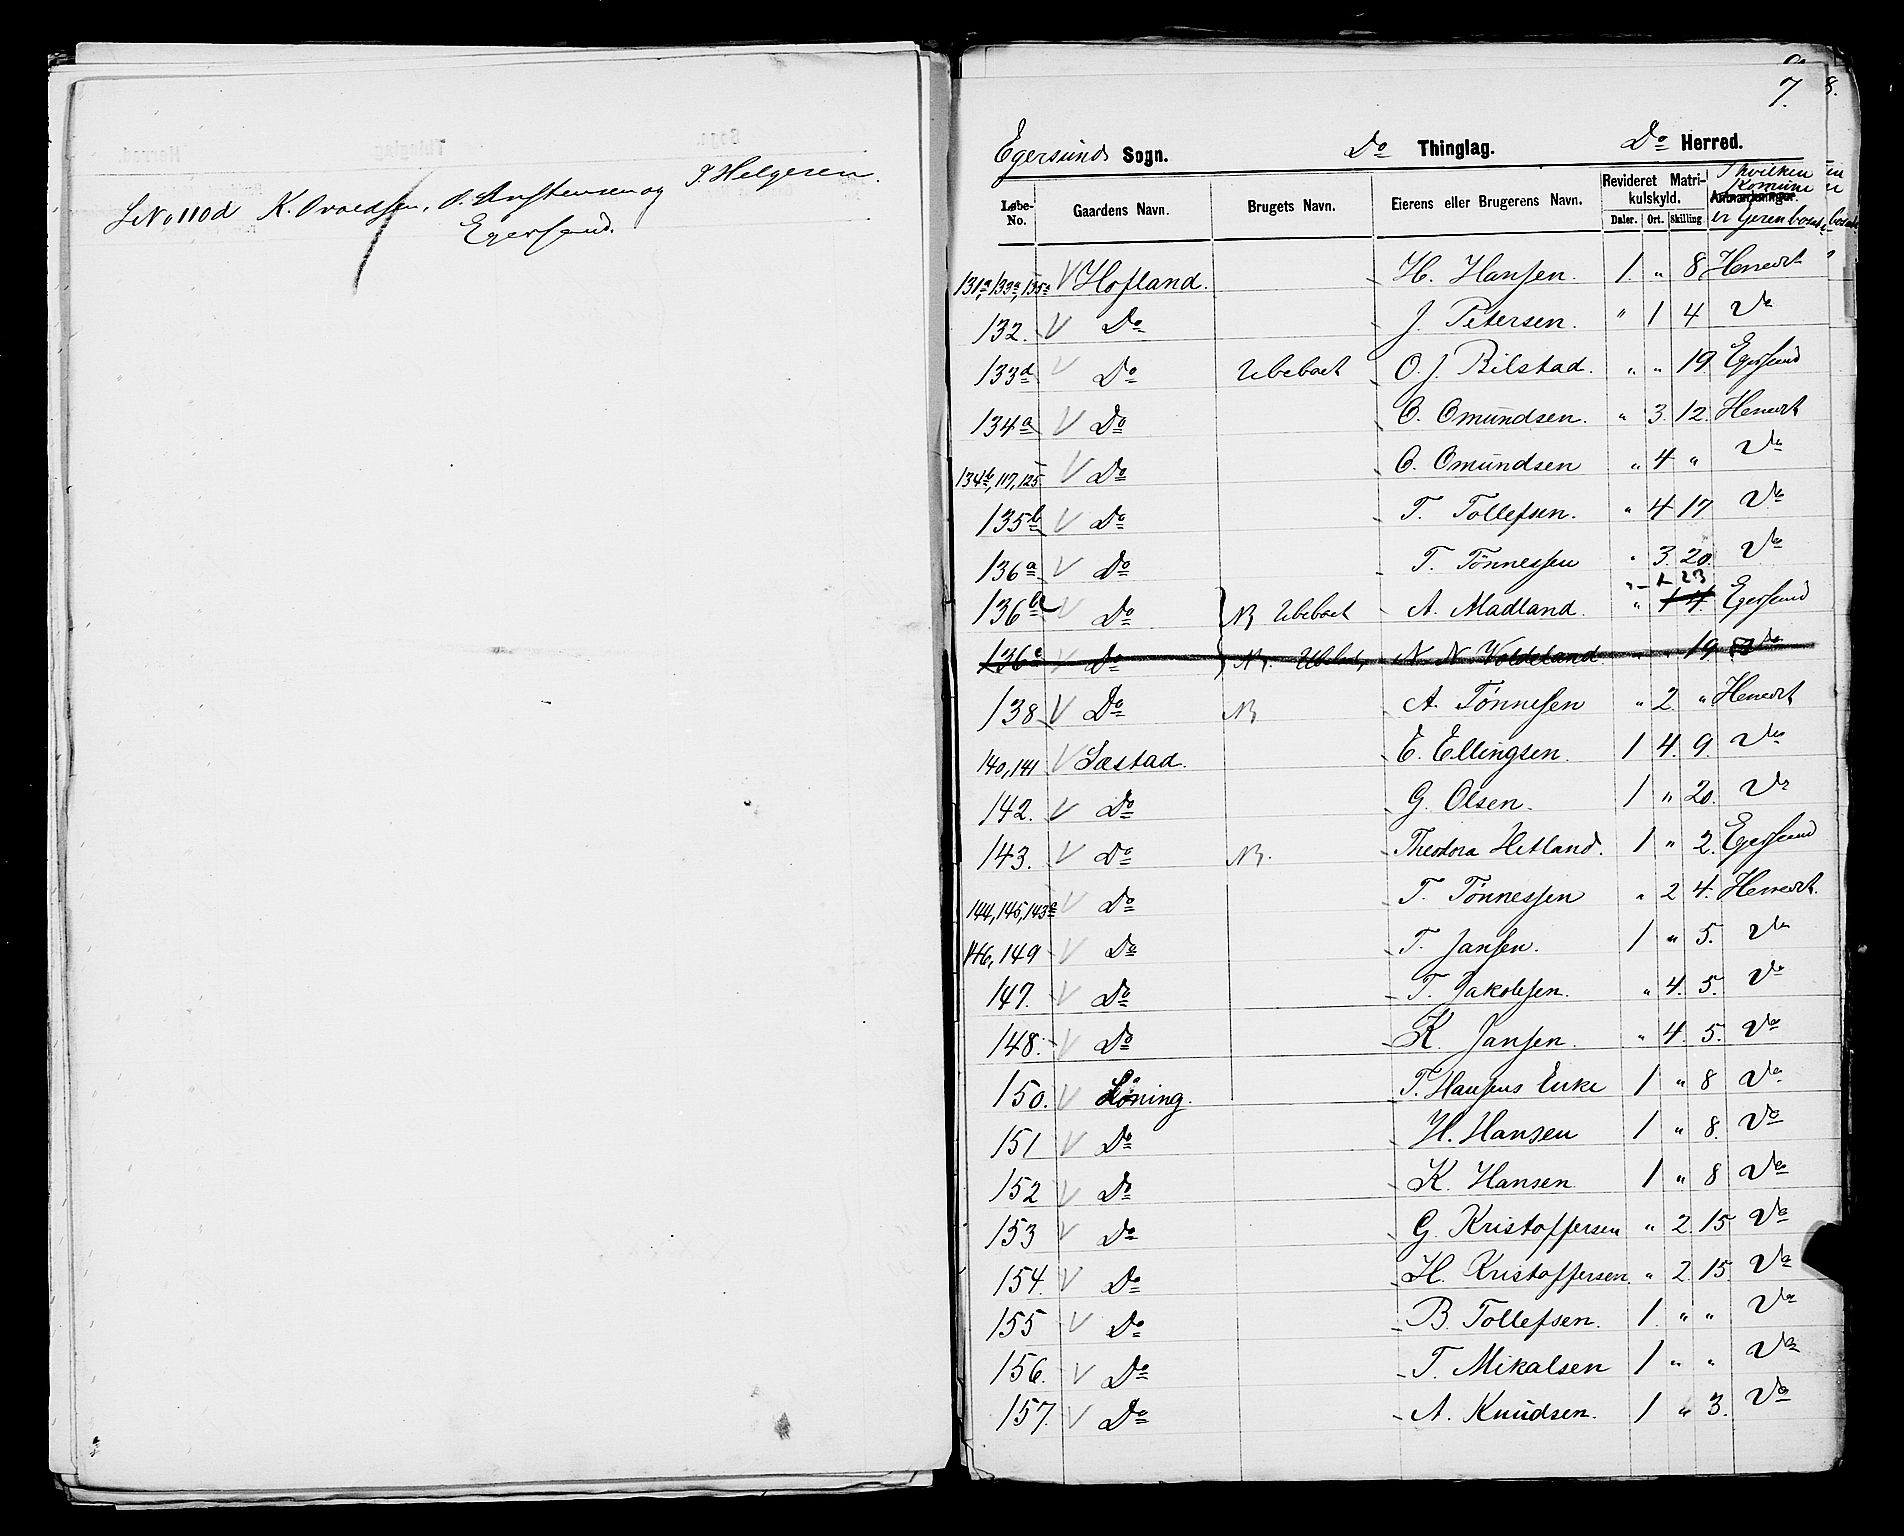 LNo 110d K. , O. Anstensen og T. Helgesen.
Egersund.
7.
8.
Egersunds Sogn. Do Thinglag. Do Herred.
Løbe-No. Gaardens Navn. Brugets Navn. Eierens eller Brugerens Navn. Revideret Matrikulskyld. Daler. Ort. Skilling Anmærkninger. I hvilken Komune er Eieren bosat
131a, 133a, 135a V Hofland. H. Hansen. 1. " 8 Herredt
132. V Do J. Petersen. " 1 4 Do
133d V Do Ubeboet O. J. Bilstad. " " 19 Egersund
134a V Do O. Omundsen. " 3. 12. Herredt
134b, 117, 125 V Do O. Omundsen " 4 " Do
135b V Do T. Tollefsen. " 4 17 Do
136a V Do T. Tönnessen " 3. 20. Do
" 1 23
136b V Do NB Ubeboet A. Madland. " 1 4. Egersund
136c V Do NB. Ubeboet N. N. Voldeland " " 19 Do
138 V Do NB A. Tønnesen " 2 " Herredt
140, 141 V Sæstad. E. Ellingsen. 1 4. 9. Do
142. V Do G. Olsen. 1 " 20. Do
143. V Do NB. Theodora Hetland. 1 " 2. Egersund
144, 145, 143a V Do T. Tönnessen " 2 4. Herredt.
146, 149 V Do T. Jansen. 1 " 5. Do
147. V Do T. Jakobsen. " 4. 5. Do
148. V Do K. Jansen. " 4. 5. Do
150. V Löning. T. Hansens Enke 1 " 8 Do
151 V Do H. Hansen 1 " 8. Do
152 V Do K. Hansen 1 " 8 Do
153 V Do G. Kristoffersen " 2. 15 Do
154. V Do H. Kristoffersen. " 2 15 Do
155 V Do B. Tollefsen. 1. " " Do
156. V Do T. Mikalsen 1 " " Do
157. V Do A. Knudsen. 1 " 3. Do